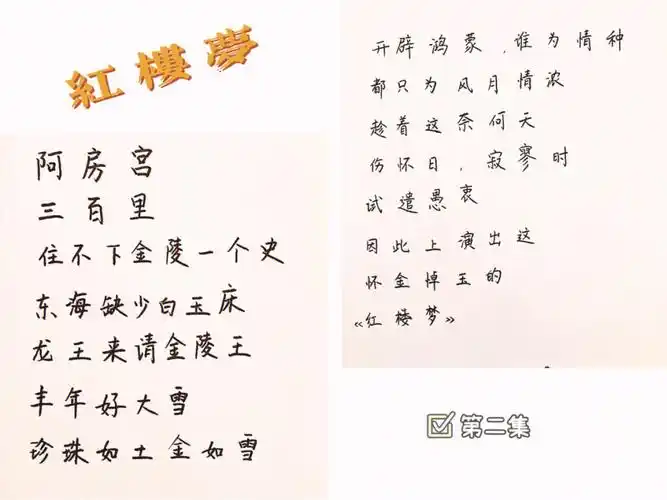 紅樓夢
阿房宫
三百里
住不下金陵一个史
东海缺少白玉床
龙王来请金陵王
丰年好大雪
珍珠如土金如雪
开辟鸿蒙,谁为情种
都只为风月情浓
趁着这奈何天
伤怀日,寂寥时
试遣愚衷
因此上演出这
怀金悼玉的
《红楼梦》
第二集